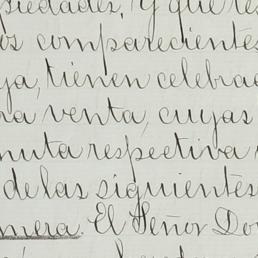 siedades, y que
os comparecientes
ya, tienen celebra
ra venta, cuyas
nuta respectiva
de las siguientes
mera. El Señor Do